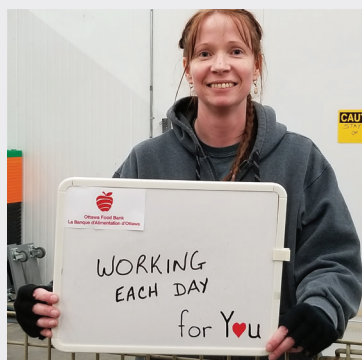 CAUT
Ottawa Food Bank
La Banque d'Alimentation d'Ottawa
WORKING
EACH DAY
for You